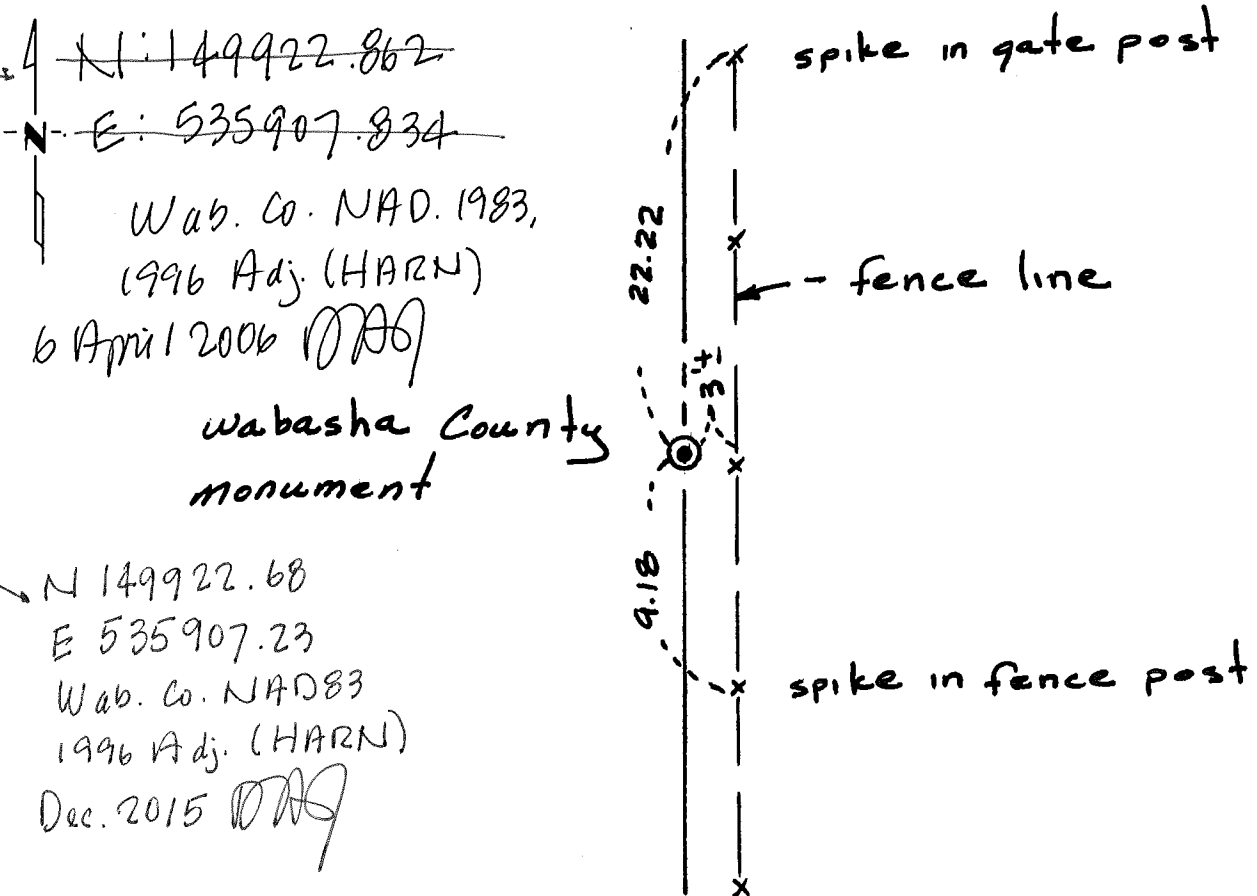 N: 149922.862
N E: 535907.834
Wab. Co. NAD. 1983,
1996 Adj. (HARN)
6 April 2006
Wabasha County
monument
N 149922.68
E 535907.23
Wab. Co. NAD83
1996 Adj. (HARN)
Dec. 2015
spike in gate post
22.22
fence line
3'±
9.18
spike in fence post